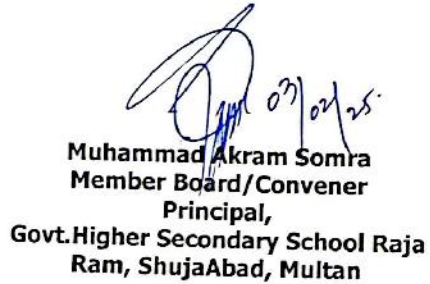 03/02/25.
Muhammad Akram Somra
Member Board/Convener
Principal,
Govt.Higher Secondary School Raja
Ram, ShujaAbad, Multan